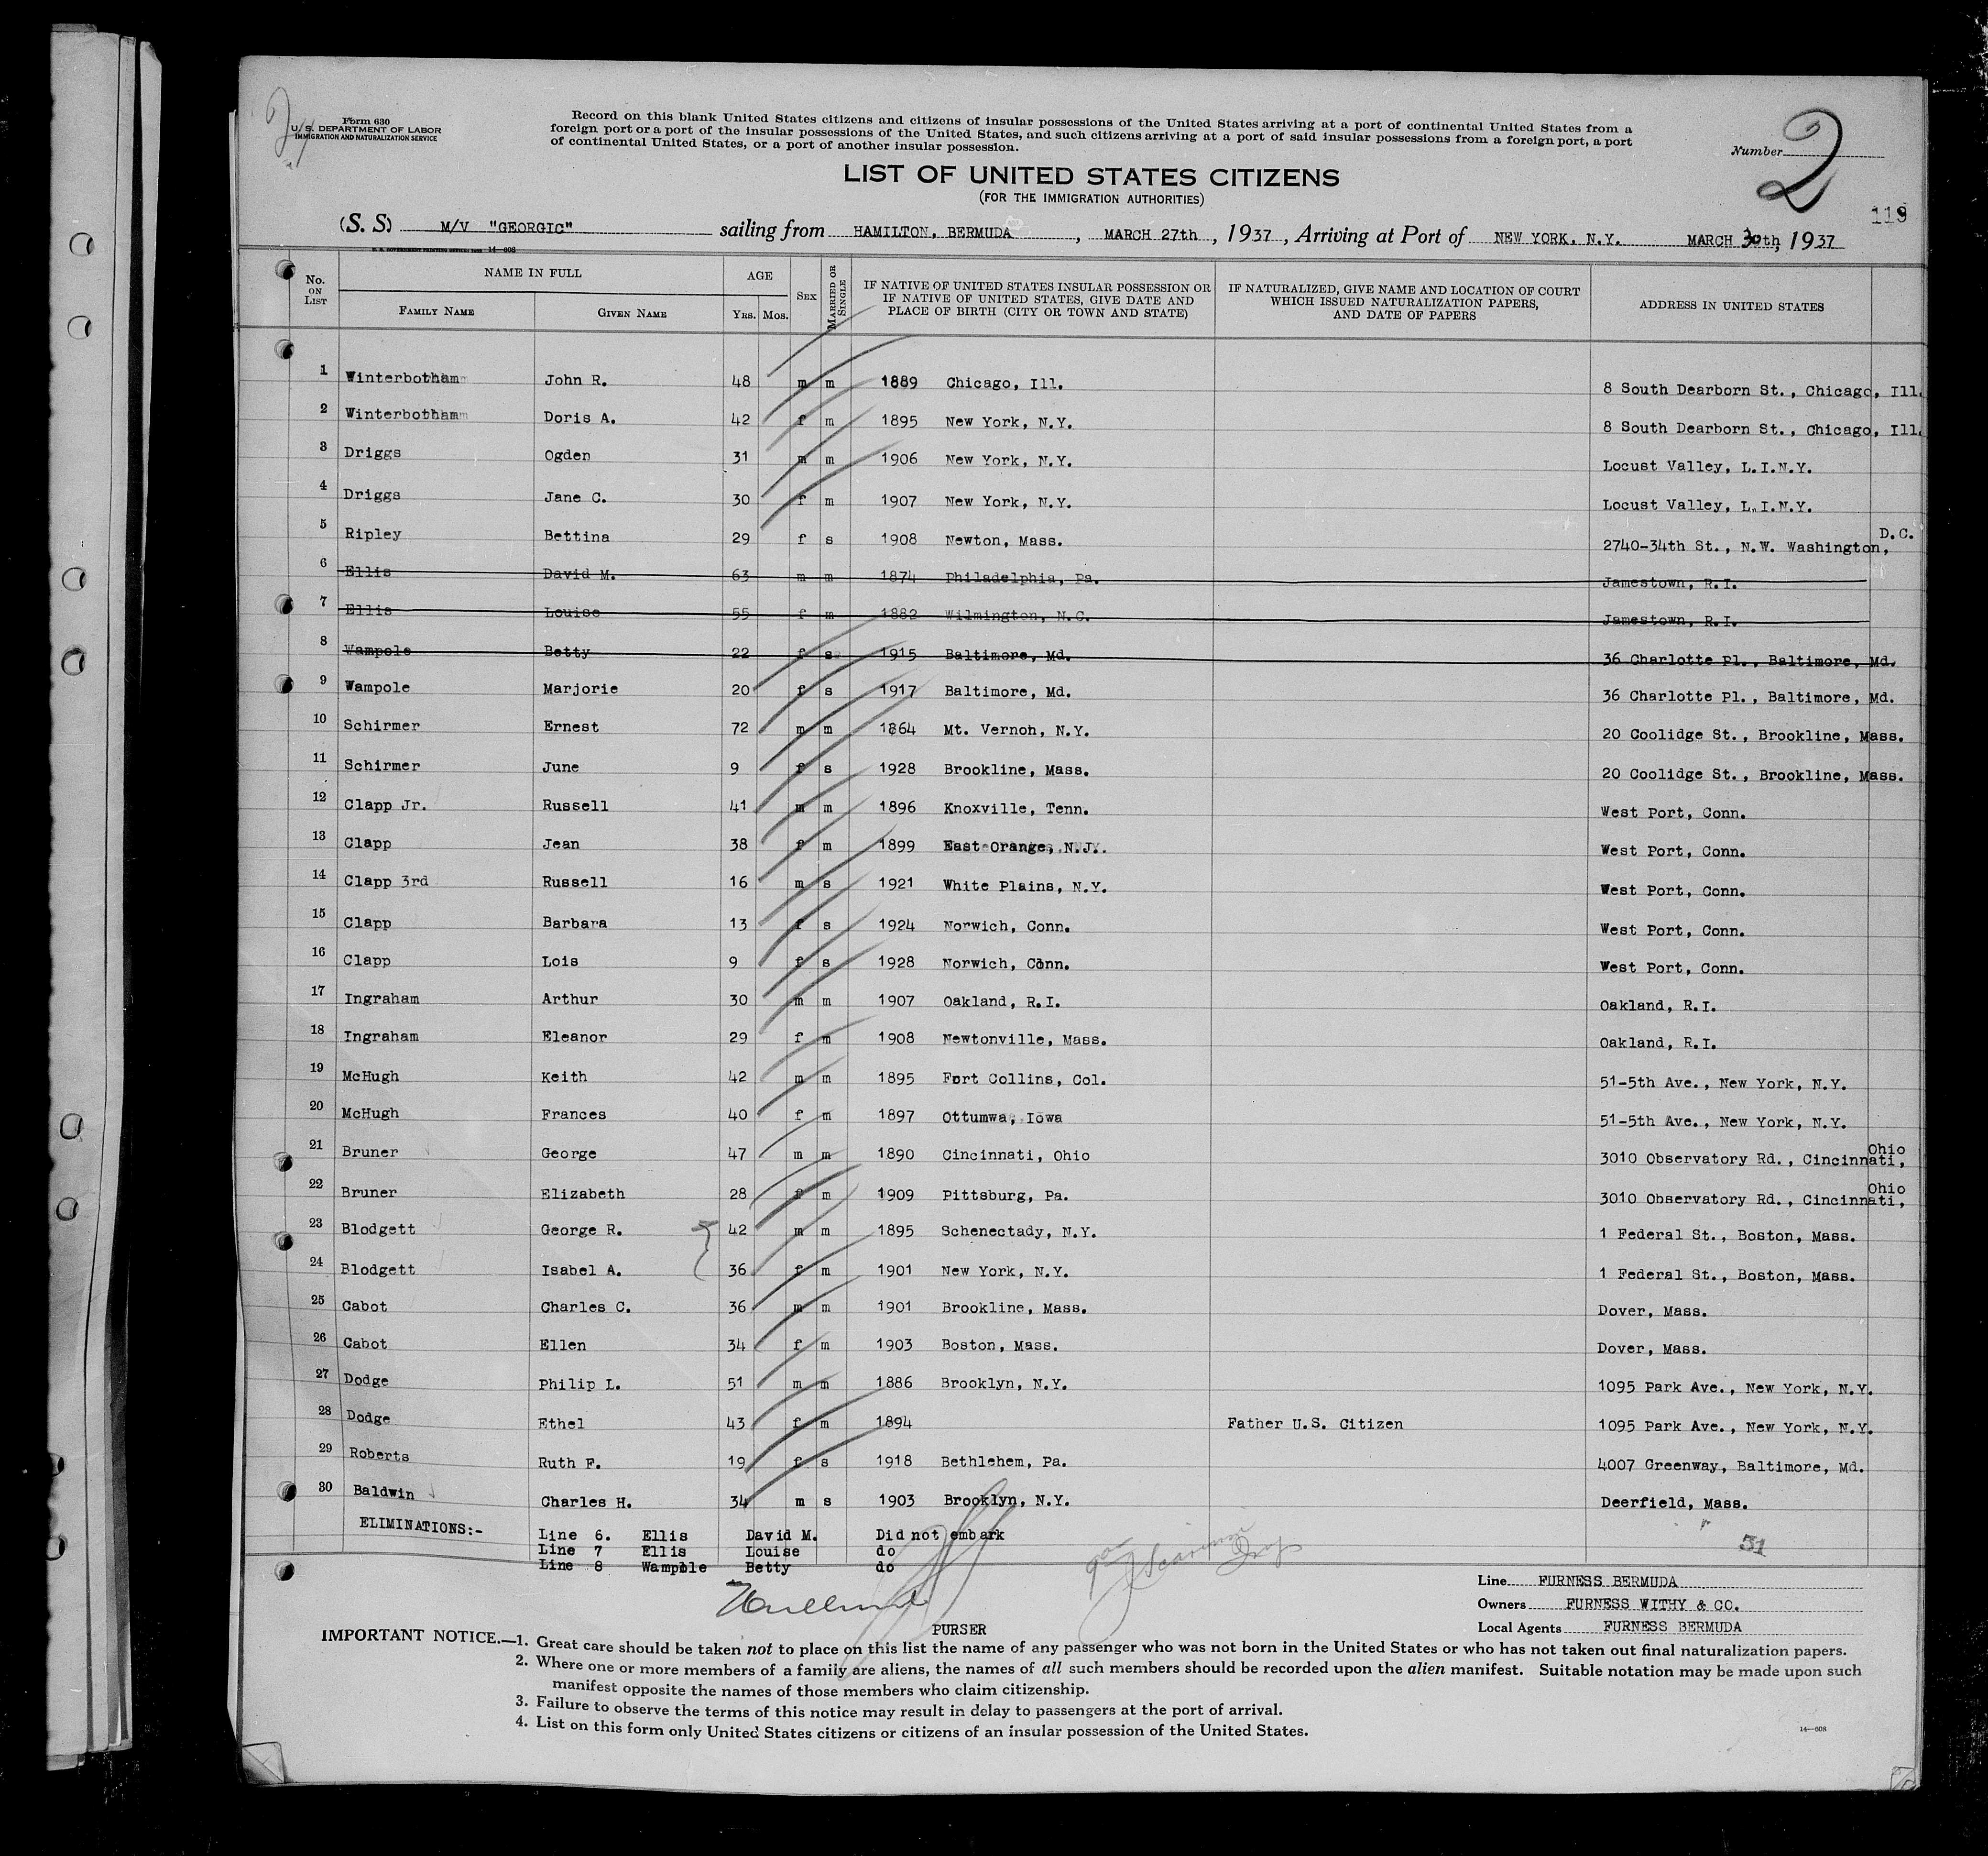 Form 630
U. S. DEPARTMENT OF LABOR
IMMIGRATION AND NATURALIZATION SERVICE
Record on this blank United States citizens and citizens of insular possessions of the United States arriving at a port of continental United States from a
foreign port or a port of the insular possessions of the United States, and such citizens arriving at a port of said insular possessions from a foreign port, a port
of continental United States, or a port of another insular possession.
Number 2
LIST OF UNITED STATES CITIZENS
(FOR THE IMMIGRATION AUTHORITIES)
119
(S. S) M/V "GEORGIC" sailing from HAMILTON, BERMUDA, MARCH 27th, 1937, Arriving at Port of NEW YORK, N.Y. MARCH 30th, 1937
U. S. GOVERNMENT PRINTING OFFICE 14—608
No. ON LIST NAME IN FULL FAMILY NAME GIVEN NAME AGE YRS. MOS. SEX MARRIED OR SINGLE IF NATIVE OF UNITED STATES INSULAR POSSESSION OR IF NATIVE OF UNITED STATES, GIVE DATE AND PLACE OF BIRTH (CITY OR TOWN AND STATE) IF NATURALIZED, GIVE NAME AND LOCATION OF COURT WHICH ISSUED NATURALIZATION PAPERS, AND DATE OF PAPERS ADDRESS IN UNITED STATES
1 Winterbotham John R. 48 m m 1889 Chicago, Ill. 8 South Dearborn St., Chicago, Ill.
2 Winterbotham Doris A. 42 f m 1895 New York, N.Y. 8 South Dearborn St., Chicago, Ill.
3 Driggs Ogden 31 m m 1906 New York, N.Y. Locust Valley, L.I.N.Y.
4 Driggs Jane C. 30 f m 1907 New York, N.Y. Locust Valley, L.I.N.Y.
5 Ripley Bettina 29 f s 1908 Newton, Mass. 2740-34th St., N.W. Washington, D.C.
6 Ellis David M. 63 m m 1874 Philadelphia, Pa. Jamestown, R.I.
7 Ellis Louise 55 f m 1882 Wilmington, N.C. Jamestown, R.I.
8 Wampole Betty 22 f s 1915 Baltimore, Md. 36 Charlotte Pl., Baltimore, Md.
9 Wampole Marjorie 20 f s 1917 Baltimore, Md. 36 Charlotte Pl., Baltimore, Md.
10 Schirmer Ernest 72 m m 1864 Mt. Vernon, N.Y. 20 Coolidge St., Brookline, Mass.
11 Schirmer June 9 f s 1928 Brookline, Mass. 20 Coolidge St., Brookline, Mass.
12 Clapp Jr. Russell 41 m m 1896 Knoxville, Tenn. West Port, Conn.
13 Clapp Jean 38 f m 1899 East Orange, N.J. West Port, Conn.
14 Clapp 3rd Russell 16 m s 1921 White Plains, N.Y. West Port, Conn.
15 Clapp Barbara 13 f s 1924 Norwich, Conn. West Port, Conn.
16 Clapp Lois 9 f s 1928 Norwich, Conn. West Port, Conn.
17 Ingraham Arthur 30 m m 1907 Oakland, R.I. Oakland, R.I.
18 Ingraham Eleanor 29 f m 1908 Newtonville, Mass. Oakland, R.I.
19 McHugh Keith 42 m m 1895 Fort Collins, Col. 51-5th Ave., New York, N.Y.
20 McHugh Frances 40 f m 1897 Ottumwa, Iowa 51-5th Ave., New York, N.Y.
21 Bruner George 47 m m 1890 Cincinnati, Ohio 3010 Observatory Rd., Cincinnati, Ohio
22 Bruner Elizabeth 28 f m 1909 Pittsburg, Pa. 3010 Observatory Rd., Cincinnati, Ohio
23 Blodgett George R. 42 m m 1895 Schenectady, N.Y. 1 Federal St., Boston, Mass.
24 Blodgett Isabel A. 36 f m 1901 New York, N.Y. 1 Federal St., Boston, Mass.
25 Cabot Charles C. 36 m m 1901 Brookline, Mass. Dover, Mass.
26 Cabot Ellen 34 f m 1903 Boston, Mass. Dover, Mass.
27 Dodge Philip L. 51 m m 1886 Brooklyn, N.Y. 1095 Park Ave., New York, N.Y.
28 Dodge Ethel 43 f m 1894 Father U.S. Citizen 1095 Park Ave., New York, N.Y.
29 Roberts Ruth F. 19 f s 1918 Bethlehem, Pa. 4007 Greenway, Baltimore, Md.
30 Baldwin Charles H. 34 m s 1903 Brooklyn, N.Y. Deerfield, Mass.
ELIMINATIONS:- Line 6. Ellis David M. Did not embark
Line 7 Ellis Louise do
Line 8 Wampole Betty do
31
Line FURNESS BERMUDA
Owners FURNESS WITHY & CO.
Local Agents FURNESS BERMUDA
PURSER
IMPORTANT NOTICE.—1. Great care should be taken not to place on this list the name of any passenger who was not born in the United States or who has not taken out final naturalization papers.
2. Where one or more members of a family are aliens, the names of all such members should be recorded upon the alien manifest. Suitable notation may be made upon such
manifest opposite the names of those members who claim citizenship.
3. Failure to observe the terms of this notice may result in delay to passengers at the port of arrival.
4. List on this form only United States citizens or citizens of an insular possession of the United States.
14—608